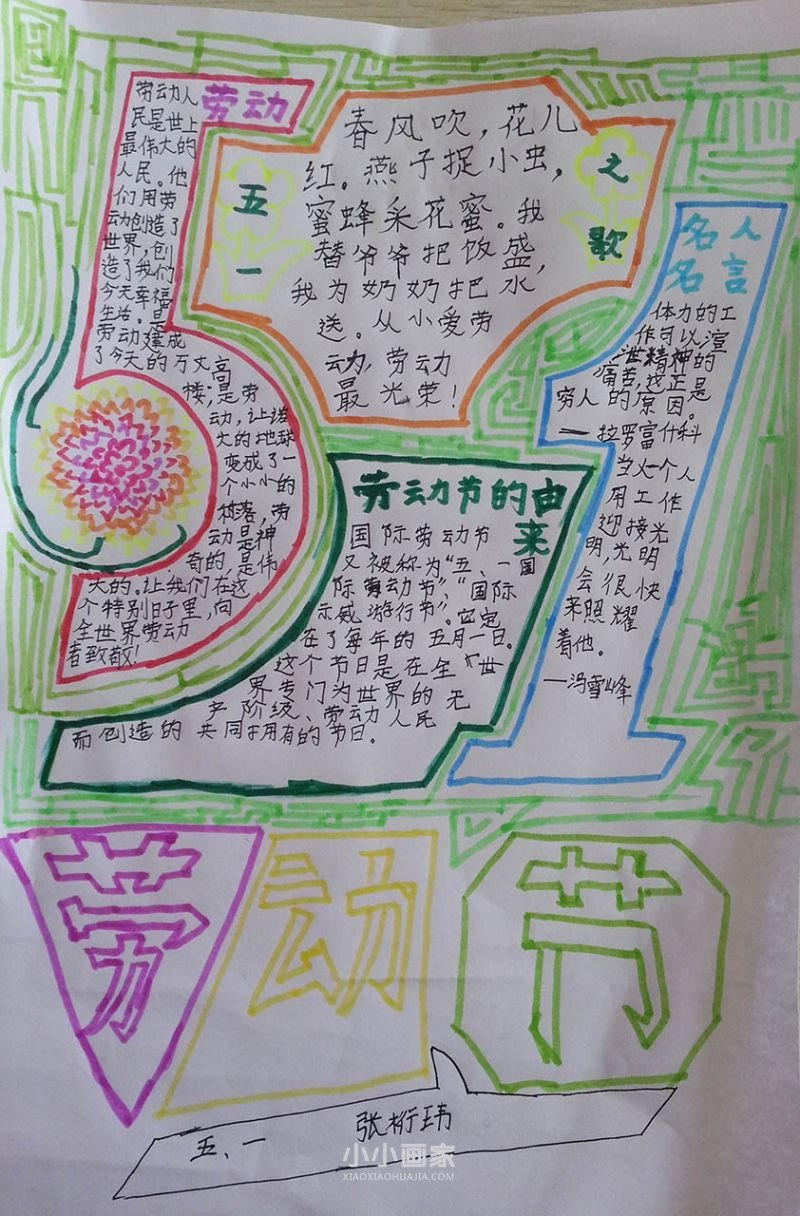 劳动
劳动人
民是世上
最伟大的
人民。他
们用劳
动创造了
世界,创
造了我们
今天幸福
生活。是
劳动建成
了今天的万丈高
楼,是劳
动,让诺
大的地球
变成了一
个小小的
村落,劳
动是神
奇的,是伟
大的。让我们在这
个特别日子里,向
全世界劳动
者致敬!
五一
之歌
春风吹,花儿
红。燕子捉小虫,
蜜蜂采花蜜。我
替爷爷把饭盛,
我为奶奶把水
送。从小爱劳
动,劳动
最光荣!
名人
名言
体力的工
作可以渲
泄精神的
痛苦,这正是
穷人的原因。
一拉罗富什科
当一个人
用工作
迎接光
明,光明
会很快
来照耀
着他。
—冯雪峰
劳动节的由
来
国际劳动节
又被称为“五、一国
际劳动节”、“国际
示威游行节”。它定
在了每年的五月一日。
这个节日是在全世
界专门为世界的无
产阶级、劳动人民
而创造的共同拥有的节日.
劳动节
五、一 张桁玮
小小画家
XIAOXIAOHUAJIA.COM